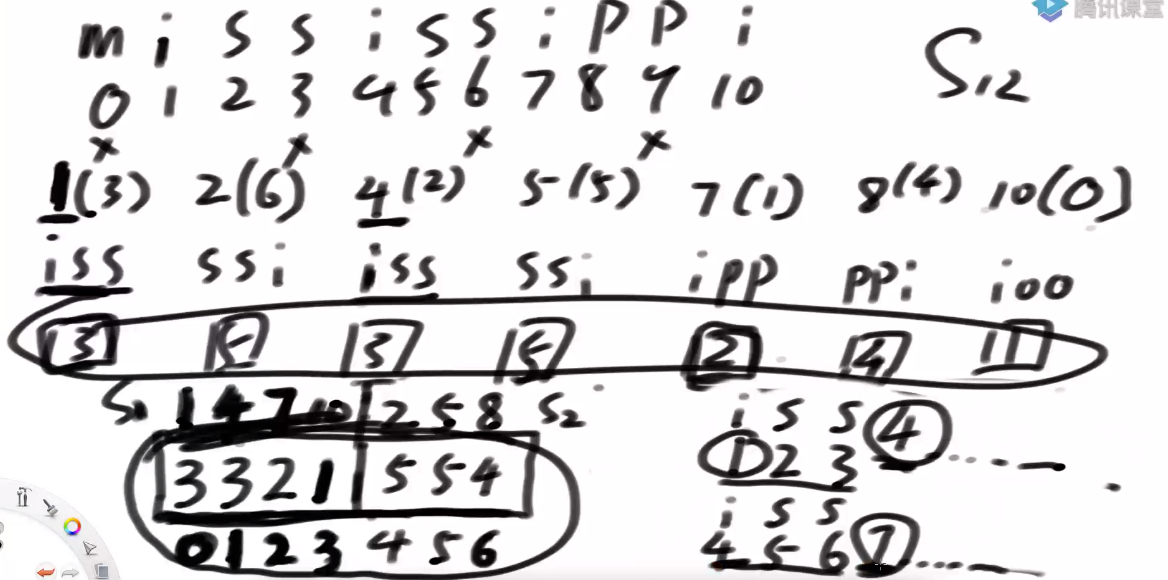 腾讯课堂
m i s s i s s i p p i
0 1 2 3 4 5 6 7 8 9 10
S12
x x x x
1(3) 2(6) 4(2) 5(5) 7(1) 8(4) 10(0)
iss ssi iss ssi ipp ppi i00
3 5 3 5 2 4 1
S1 1 4 7 10 | 2 5 8 S2
3 3 2 1 | 5 5 4
0 1 2 3 4 5 6
i s s 4
1 2 3 ......
i s s
4 5 6 7 ......